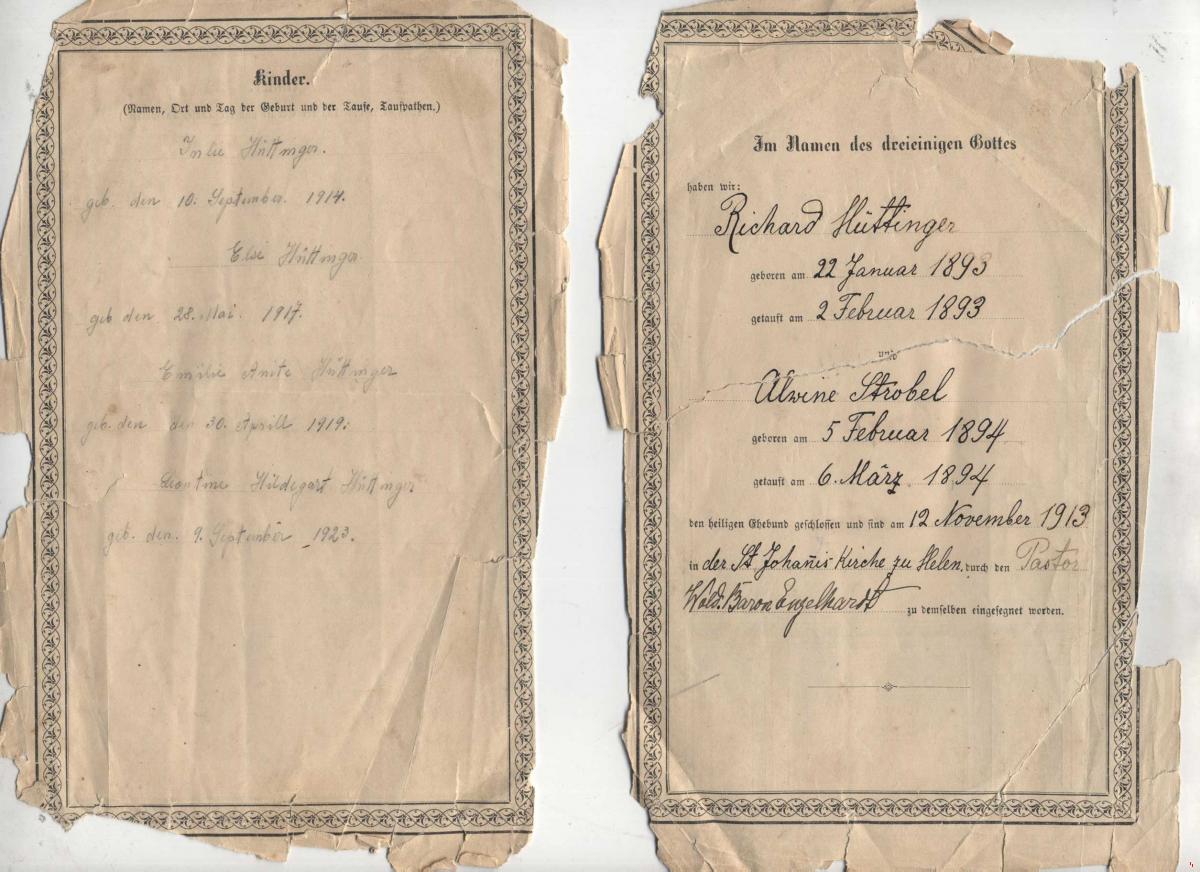 Kinder.
(Namen, Ort und Tag der Geburt und der Taufe, Taufpathen.)
Hüttinger.
geb. den 10. September. 1914.
Else Hüttinger
geb den 28. Mai. 1917.
Emilie Anite Hüttinger
geb. den den 30. Aprill 1919.
Leontine Hildegart Hüttinger
geb. den. 9. September 1923.
Im Namen des dreieinigen Gottes
haben wir:
Richard Hüttinger
geboren am 22 Januar 1893
getauft am 2 Februar 1893
und
Alwine Strobel
geboren am 5 Februar 1894
getauft am 6. März 1894
den heiligen Ehebund geschlossen und sind am 12 November 1913
in der St Johañis Kirche zu Helen. durch den Pastor
Wold. Baron Engelhardt zu demselben eingesegnet worden.